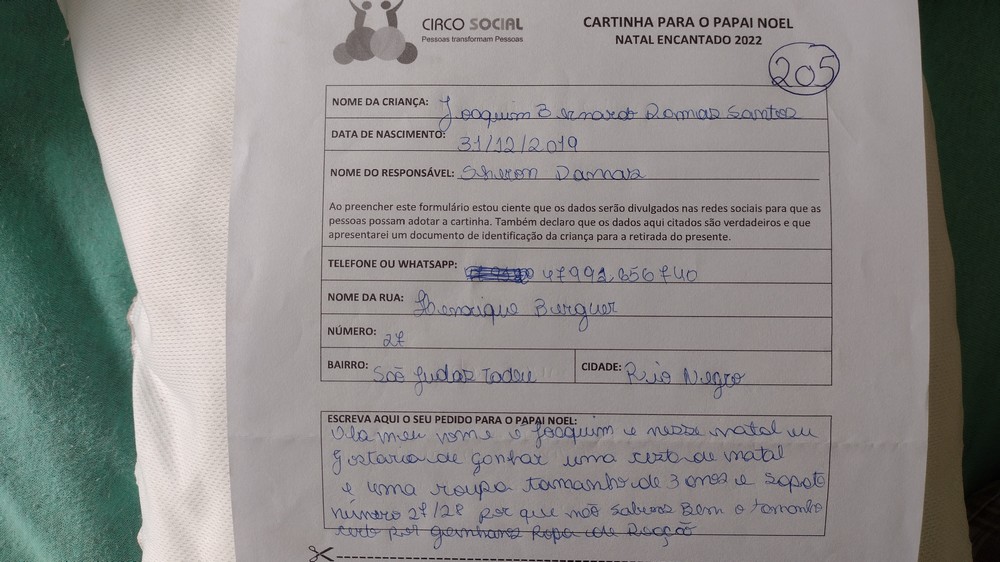 CIRCO SOCIAL
Pessoas transformam Pessoas
CARTINHA PARA O PAPAI NOEL
NATAL ENCANTADO 2022
205
NOME DA CRIANÇA: Joaquim Bernardo Damas Santos
DATA DE NASCIMENTO: 31/12/2019
NOME DO RESPONSÁVEL: Sheron Damas
Ao preencher este formulário estou ciente que os dados serão divulgados nas redes sociais para que as
pessoas possam adotar a cartinha. Também declaro que os dados aqui citados são verdadeiros e que
apresentarei um documento de identificação da criança para a retirada do presente.
TELEFONE OU WHATSAPP: 47992.656740
NOME DA RUA: Henrique Burguer
NÚMERO: 27
BAIRRO: Saõ Judas Tadeu CIDADE: Rio Negro
ESCREVA AQUI O SEU PEDIDO PARA O PAPAI NOEL:
Ola meu nome e Joaquim e nesse natal eu
gostaria de ganhar uma cesta de natal
e uma roupa tamanho de 3 anos e sapato
número 27/28 por que não sabemos Bem o tamanho
certo por ganhamos Ropa de Doação